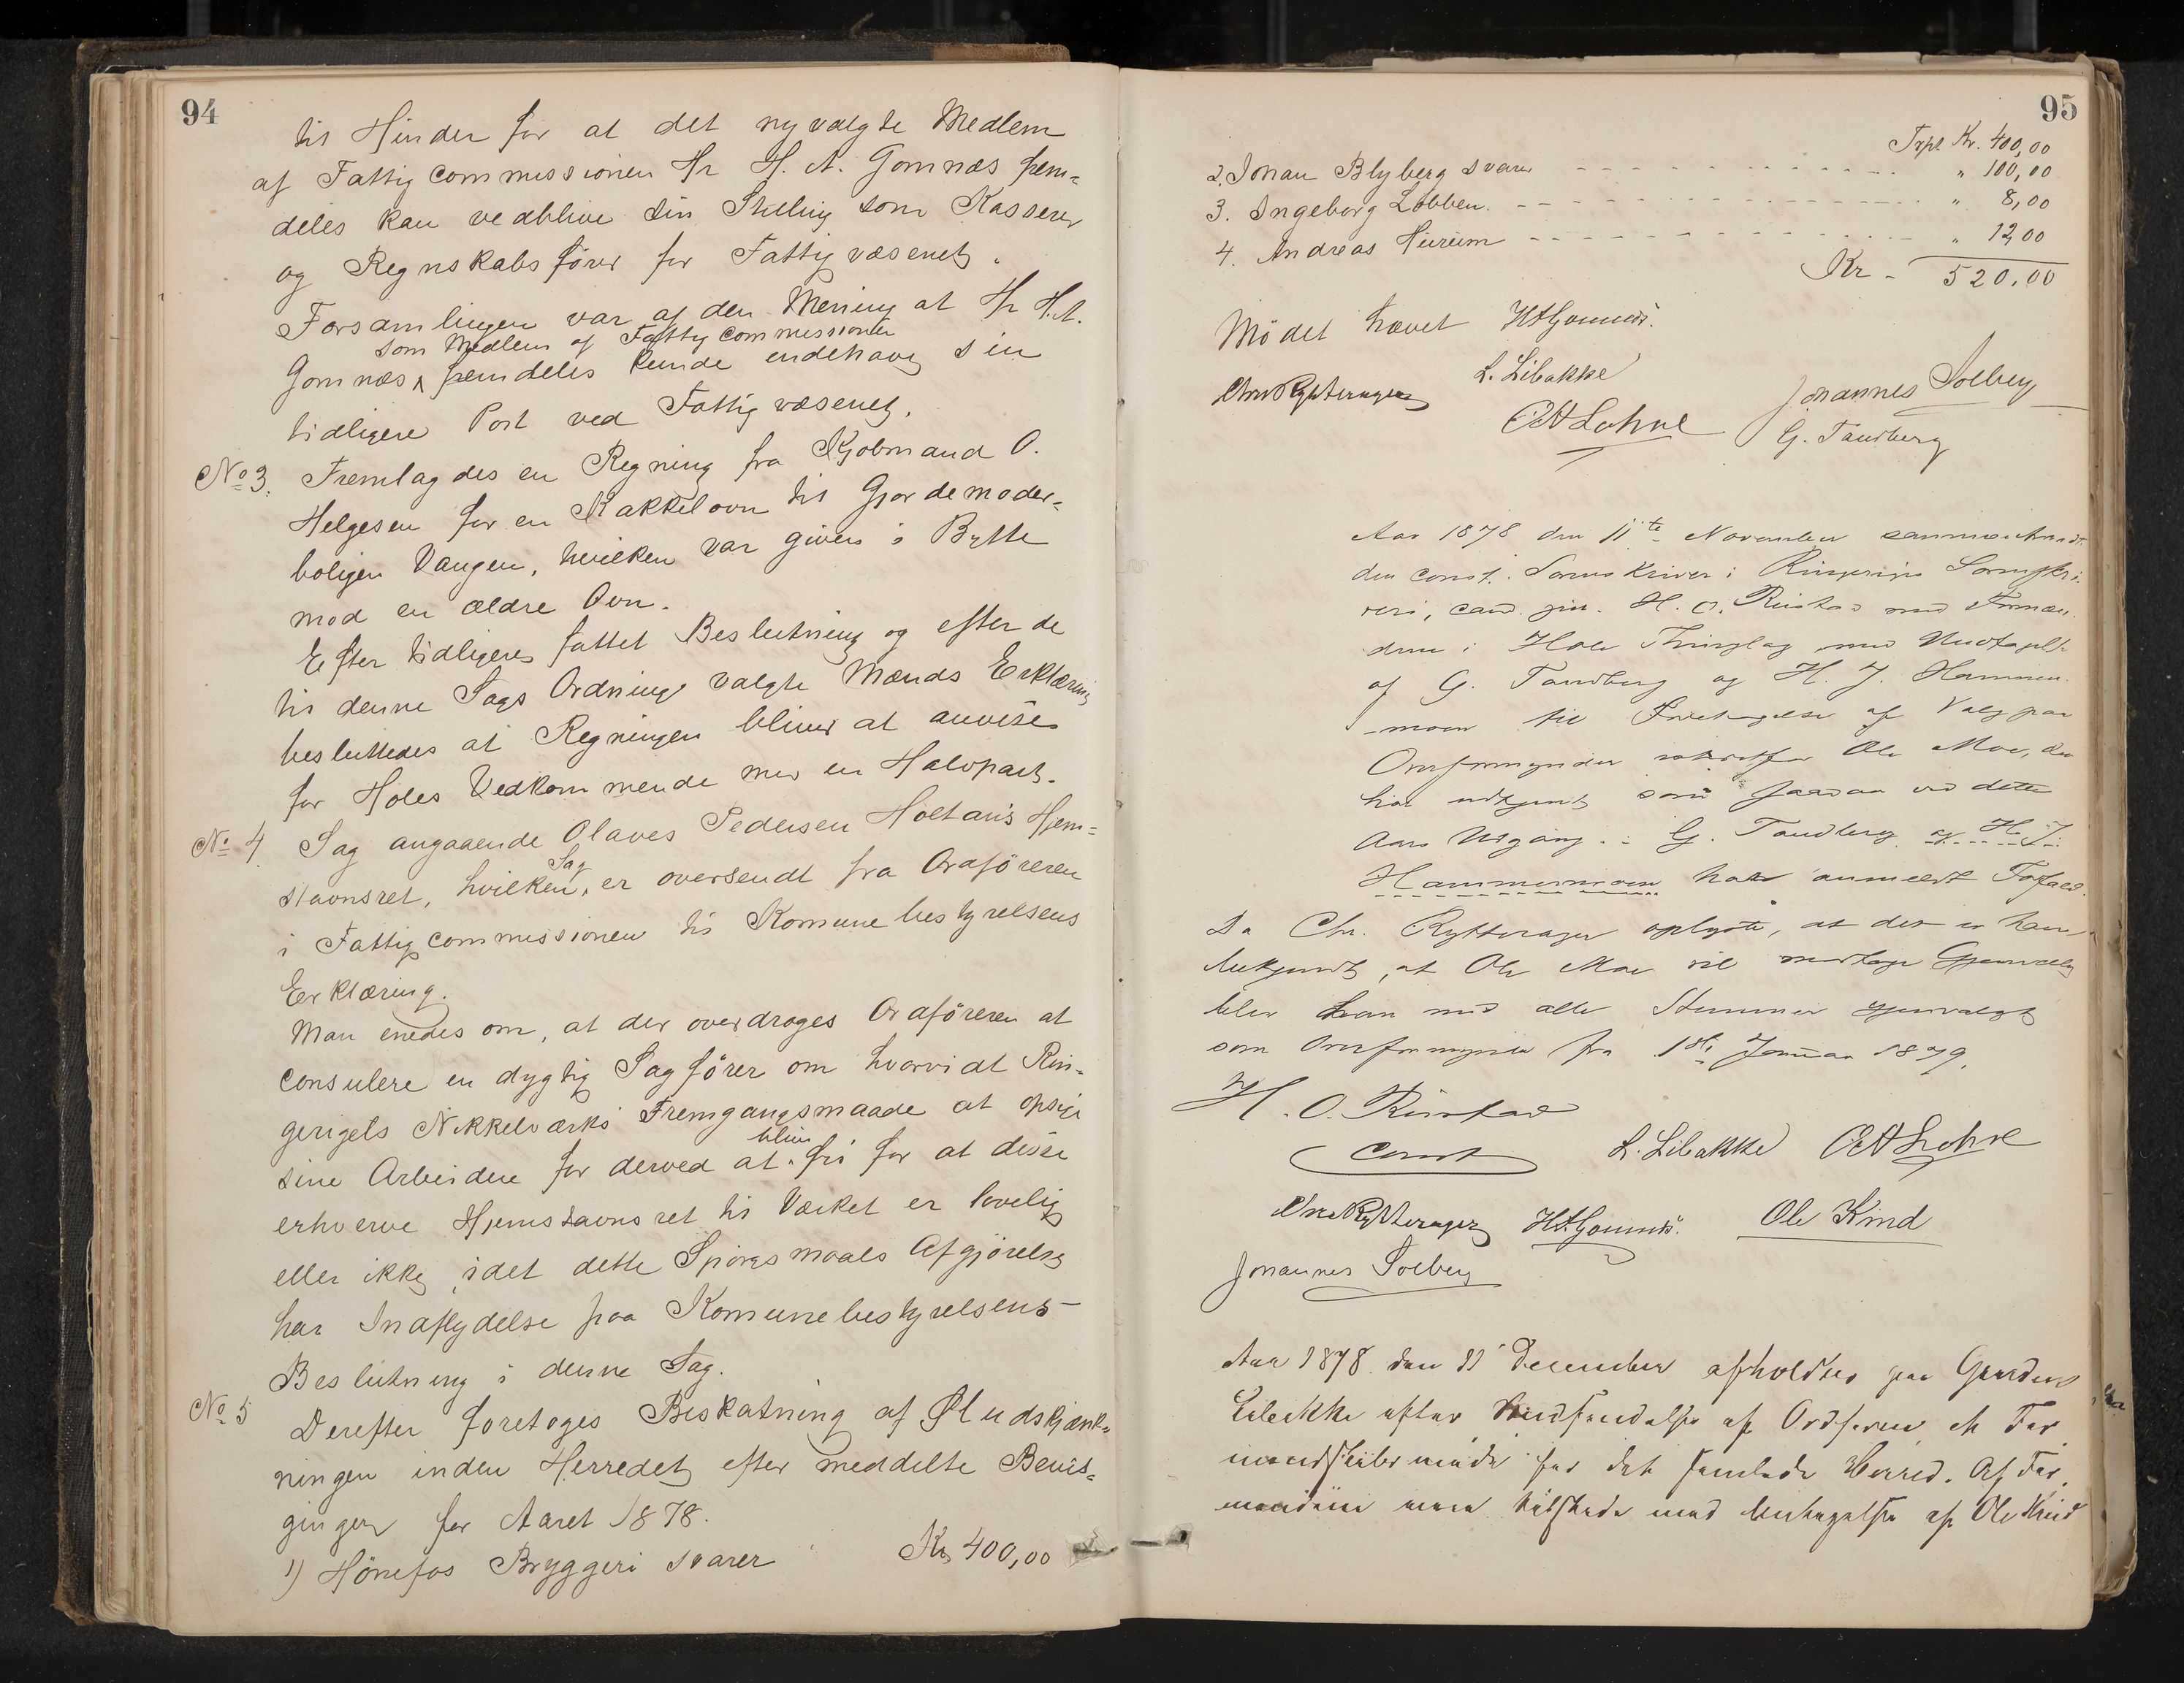 94
til Hinder for at det nyvalgte Medlem
af Fattigcommissionen Hr H. A. Gomnæs frem-
deles kan vedblive sin Stilling som Kasserer
og Regnskabsfører for Fattigvæsenet.
Forsamlingen var af den Mening at Hr H. A.
som Medlem af Fattigcommissionen
Gomnæs fremdeles kunde indehave sin
tidligere Post ved Fattigvæsenet.
No 3. Fremlagdes en Regning fra Kjøbmand O.
Helgesen for en Kakkelovn til Gjordemoder-
boligen Vangen, hvilken var given i Bytte
mod en ældre Ovn.
Efter tidligere fattet Beslutning og efter de
til denne Sags Ordning valgte Mænds Erklæring
besluttedes at Regningen bliver at anvise
for Holes Vedkommende med en Halvpart.
No 4 Sag angaaende Olaves Pedersen Holtans Hjem-
Sag
stavnsret, hvilken er oversendt fra Ordføreren
i Fattigcommissionen til Komunebestyrelsens
Erklæring.
Man enedes om, at der overdroges Ordføreren at
consulere en dygtig Sagfører om hvorvidt Rin-
gerigets Nikkelværks Fremgangsmaade at opsige
blive
sine Arbeidere for derved at fri for at disse
erhverve Hjemstavnsret til Værket er lovelig
eller ikke, idet dette Spørgsmaals Afgjørelse
har Indflydelse paa Komunebestyrelsens
Beslutning i denne Sag.
No 5 Derefter foretoges Beskatning af Øludskjænk-
ningen inden Herredet efter meddelte Bevil-
ginger for Aaret 1878.
1) Hönefos Bryggeri svarer Kr 400,00
95
Trpt Kr. 400,00
2. Johan Blyberg svarer " 100,00
3. Ingeborg Löbben " 8,00
4. Andreas Hurum " 12,00
Kr - 520.00
Mödet hævet HAGomnæs.
L. Libakke
Chr Rytterager Johannes Solberg
OA Lohne G. Tandberg
Aar 1878 den 11te November sammentraadte
den const. Sorenskriver i Ringeriges Sorenskri-
veri, cand. jur. H. O. Rustad med Formæn-
dene i Hole Thinglag med Undtagelse
af G. Tandberg og H. J. Hammer-
moen til Foretagelse af Valg paa
Overformynder istedetfor Ole Moe, der
har udtjent som saadan ved dette
Aars Udgang. G. Tandberg og H. J.
Hammermoen har anmeldt Forfald.
Da Chr. Rytterager oplyste, at det er ham
bekjendt, at Ole Moe vil modtage Gjenvalg
blev han med alle Stemmer gjenvalgt
som Overformynder fra 1ste Januar 1879.
H. O. Rustad
const L. Libakke OA Lohne
Chr Rytterager HAGomnæs. Ole Kind
Johannes Solberg
Aar 1878 den 11 December afholdtes paa Gaarden
Libakke efter af Ordføreren et For-
mandskabsmøde for det samlede Herred. Af For-
mændene vare tilstede med Undtagelse af Ole Kind